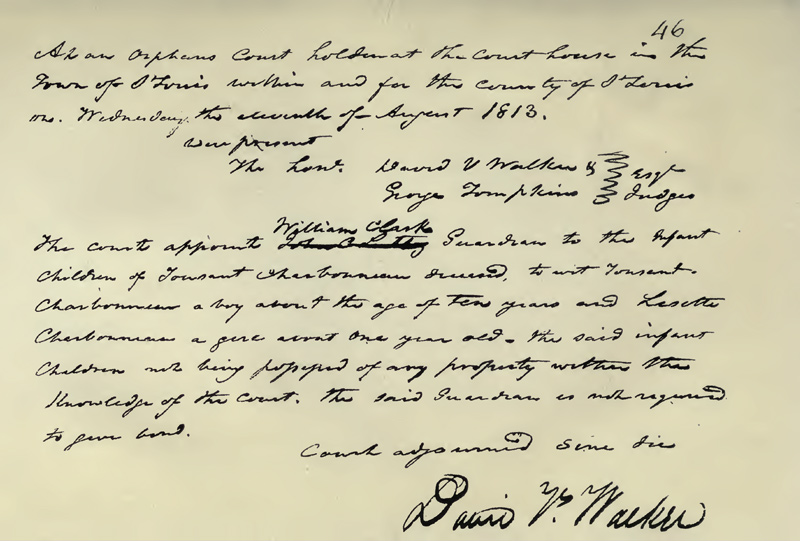 46
At an Orphans Court holden at the Court house in the
Town of St Louis within and for the County of St Louis
on Wednesday the eleventh of August 1813.
were present
The Honl. David V Walker & Esqr
George Tompkins Judges
William Clark
The court appoint John C Luttig Guardian to the infant
Children of Tousant Charbonneau deceased, to wit Tousant
Charbonneau a boy about the age of ten years and Lisette
Charbonneau a girl about one year old. The said infant
Children not being possessed of any property within the
Knowledge of the Court. the said Guardian is not required
to give bond.
Court adjourned Sine die
David V. Walker